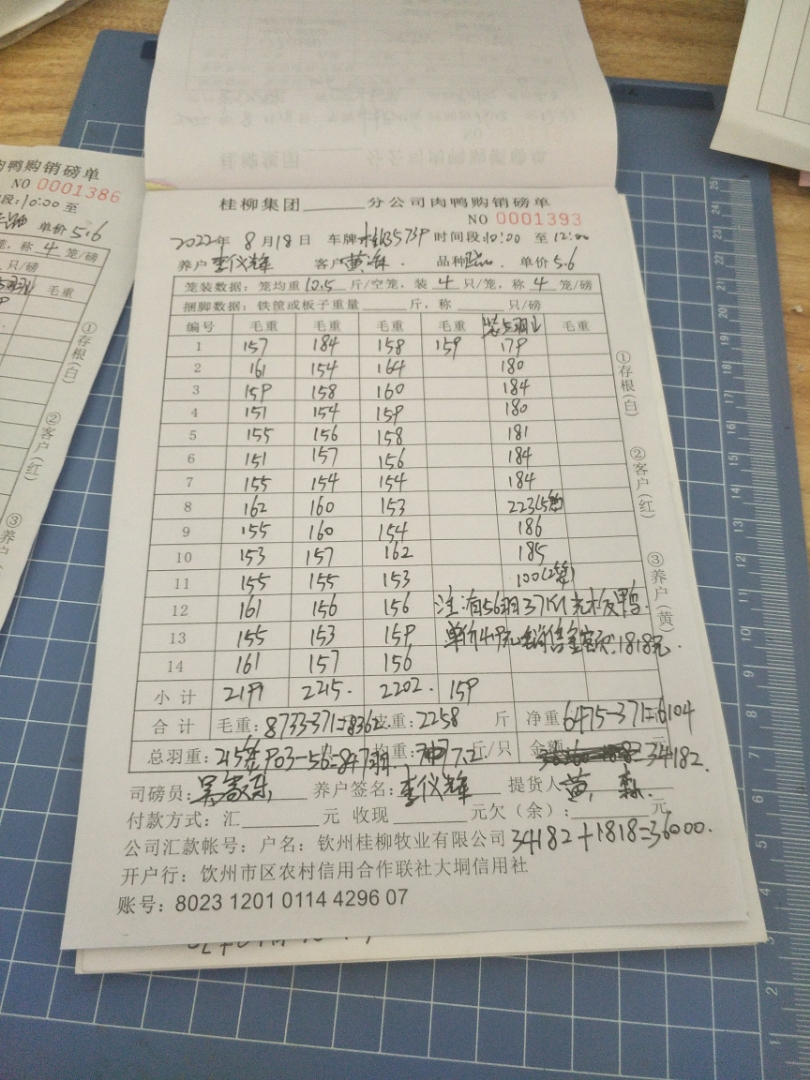 桂柳集团______分公司肉鸭购销磅单
NO 0001393
2022年 8月18日 车牌 时间段10:00 至12:00
养户 李仪锋 客户 黄 品种 单价5.6
笼装数据：笼均重10.5斤/空笼，装4只/笼，称4笼/磅
捆脚数据：铁筐或板子重量______斤，称______只/磅
编号 毛重 毛重 毛重 毛重 毛重
1 157 184 158 159 179
2 161 154 164 180
3 159 158 160 184
4 151 154 159 180
5 155 156 158 181
6 151 157 156 184
7 155 154 154 184
8 162 160 153 223(5笼)
9 155 160 154 186
10 153 157 162 185
11 155 155 153 100(2笼)
12 161 156 156 注：有56羽371斤光板鸭.
13 155 153 159 单价4.9元销售金额.1818元.
14 161 157 156
小计 2191 2215. 2202. 159
合计 毛重：8733-371=8362 皮重：2258 斤 净重：6475-371=6104
总羽重：215笼903-56=847羽 均重：7.2斤/只 金额 =34182.
司磅员： 养户签名：李仪锋 提货人 黄
付款方式：汇______元 收现______元欠（余）：______元
公司汇款帐号：户名：钦州桂柳牧业有限公司 34182+1818=36000.
开户行：钦州市区农村信用合作联社大垌信用社
账号：8023 1201 0114 4296 07
①存根(白)
②客户(红)
③养户(黄)
肉鸭购销磅单
NO 0001386
段：10:00 至
单价 5.6
笼，称 4 笼/磅
只/磅
毛重
①存根(白)
②客户(红)
③养户